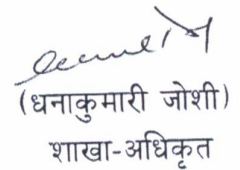 (धनाकुमारी जोशी)
शाखा-अधिकृत